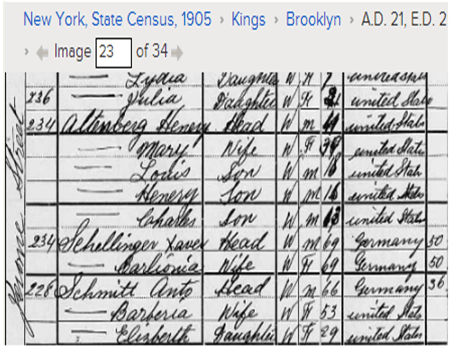 New York, State Census, 1905 › Kings › Brooklyn › A.D. 21, E.D. 2
› Image 23 of 34
Lydia Daughter W F 7 united States
236 Julia Daughter W F 2 united State
234 Altenberg Henery Head W M united States
Mary Wife W F 39 united States
Louis Son W M united States
Henery Son W M 16 united States
Charles Son W M 13 united States
234 Schellinger Xaver Head W M 69 Germany 50
Barlionia Wife W F 69 Germany 50
228 Schmitt Anto Head W M 66 Germany 36
Barberia Wife W F 53 united Stats
Elizberth Daughter W F 29 united States
Street